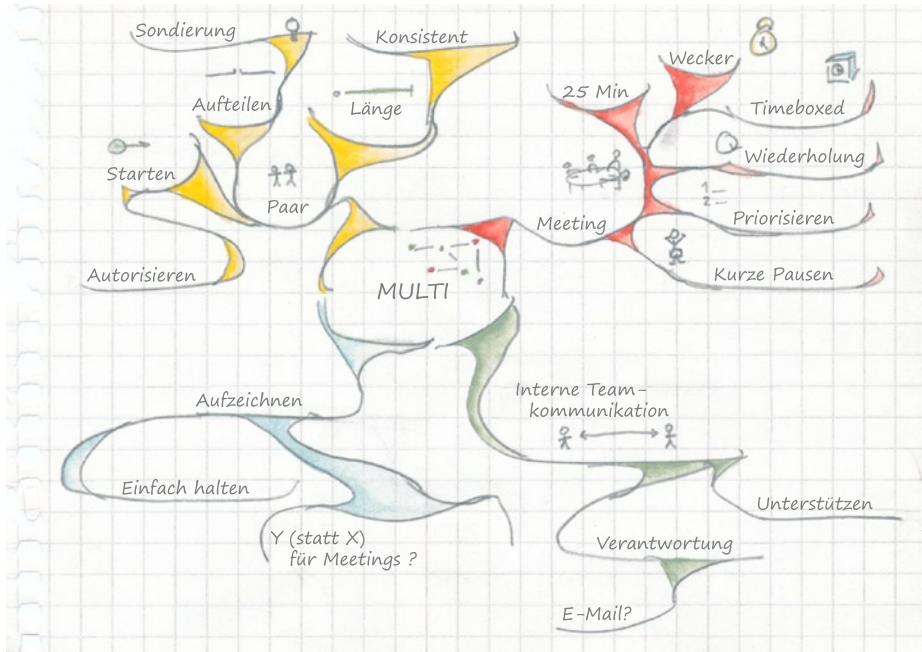 Sondierung
Konsistent
Aufteilen
Länge
Starten
Paar
Autorisieren
MULTI
Wecker
25 Min
Timeboxed
Wiederholung
Meeting
1
2
Priorisieren
Kurze Pausen
Aufzeichnen
Einfach halten
Y (statt X)
für Meetings ?
Interne Team-
kommunikation
Unterstützen
Verantwortung
E-Mail?